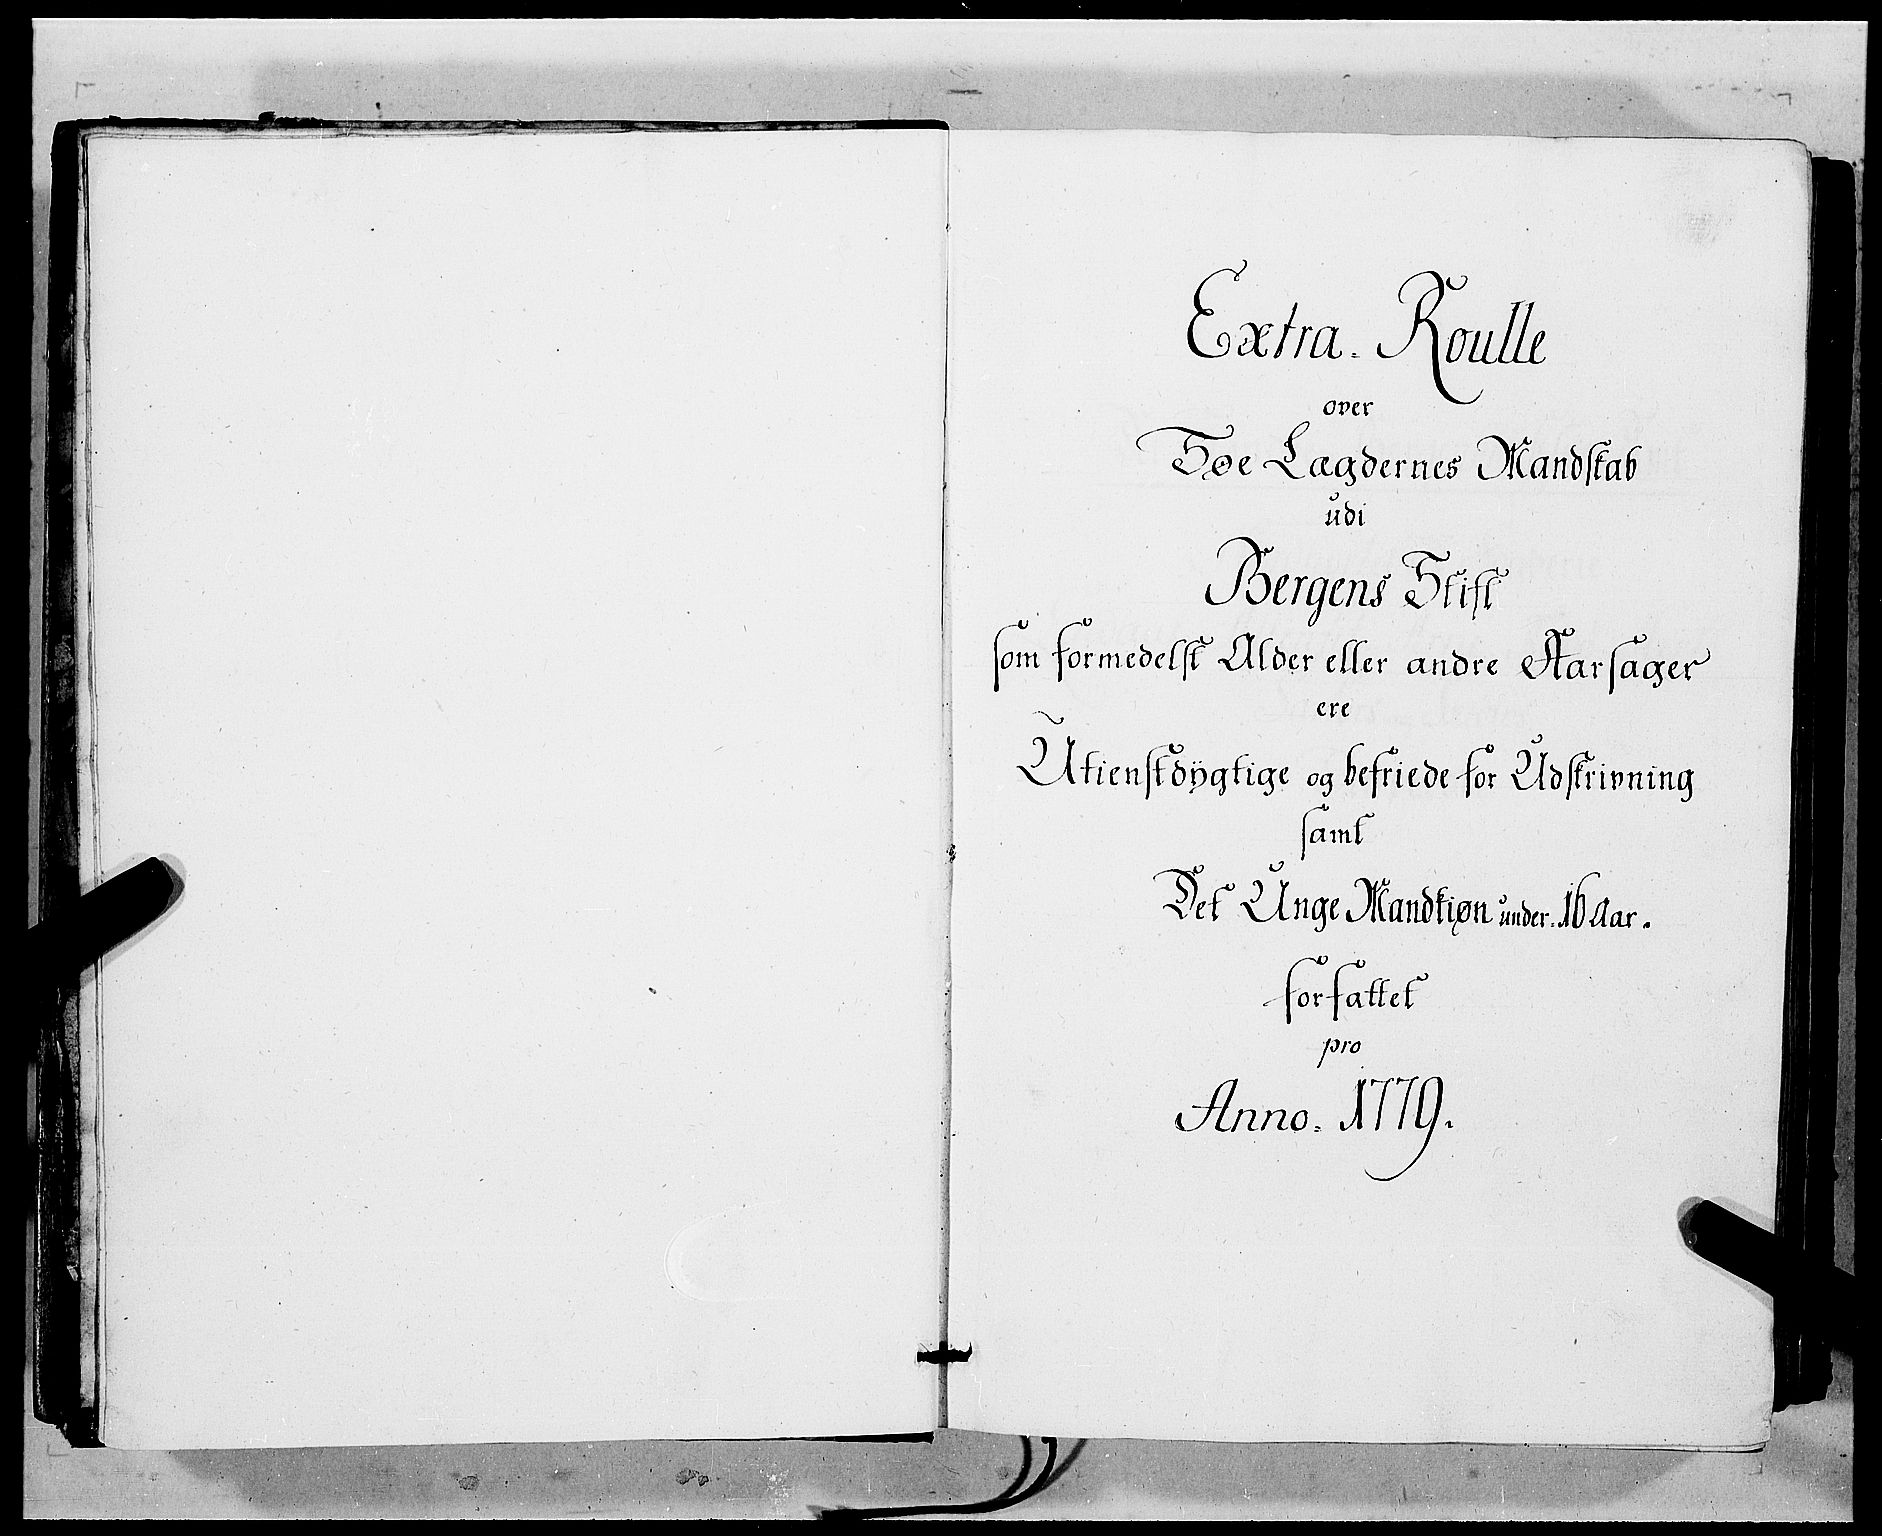 Extra. Roulle
over
Søe Lægdernes Mandskab
udi
Bergens Stift
som formedelst Alder eller andre Aarsager
ere
Utienstdÿgtige og befriede for Udskrivning
samt
Det Unge Mandkiøn under. 16 Aar.
forfattet
pro
Anno. 1779.